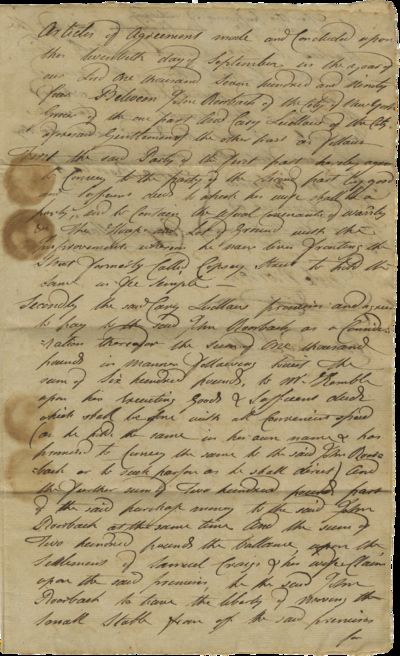 Articles of Agreement made and Concluded upon
the twentieth day of September in the year of
our Lord One thousand Seven hundred and Ninety
four Between John Roorbach of the City of New York
Grocer of the one part And Cary Ludlow of the City
aforesaid Gentleman of the other part as follows
First the said Party of the first part hereby agrees
to Convey to the party of the second part by good
and sufficient deeds to which his wife shall be a
party, and to Contain the usual Covenants of warranty
The House and Lot of Ground with the
improvements wherein he now lives fronting the
Street formerly Called Copsey Street to hold the
same in Fee Simple —
Secondly the said Cary Ludlow promises and agrees
to pay to the said John Roorbach as a Conside
-ration therefor the sum of One thousand
pounds in manner following that is The
sum of Six hundred pounds, to Mr. Humble
upon his Executing Good & Sufficient deeds
which shall be done with all Convenient speed
(as he holds the same in his own name & has
promised to Convey the same to the said John Roor-
bach or to such person as he shall direct) And
the further sum of Two hundred pounds part
of the said purchase money to the said John
Roorbach at the same time And the sum of
Two hundred pounds the ballance upon the
Settlement of Samuel Craigs & his wifes Claim
upon the said premises he the said John
Roorbach to have the liberty of moving the
small Stable from off the said premises